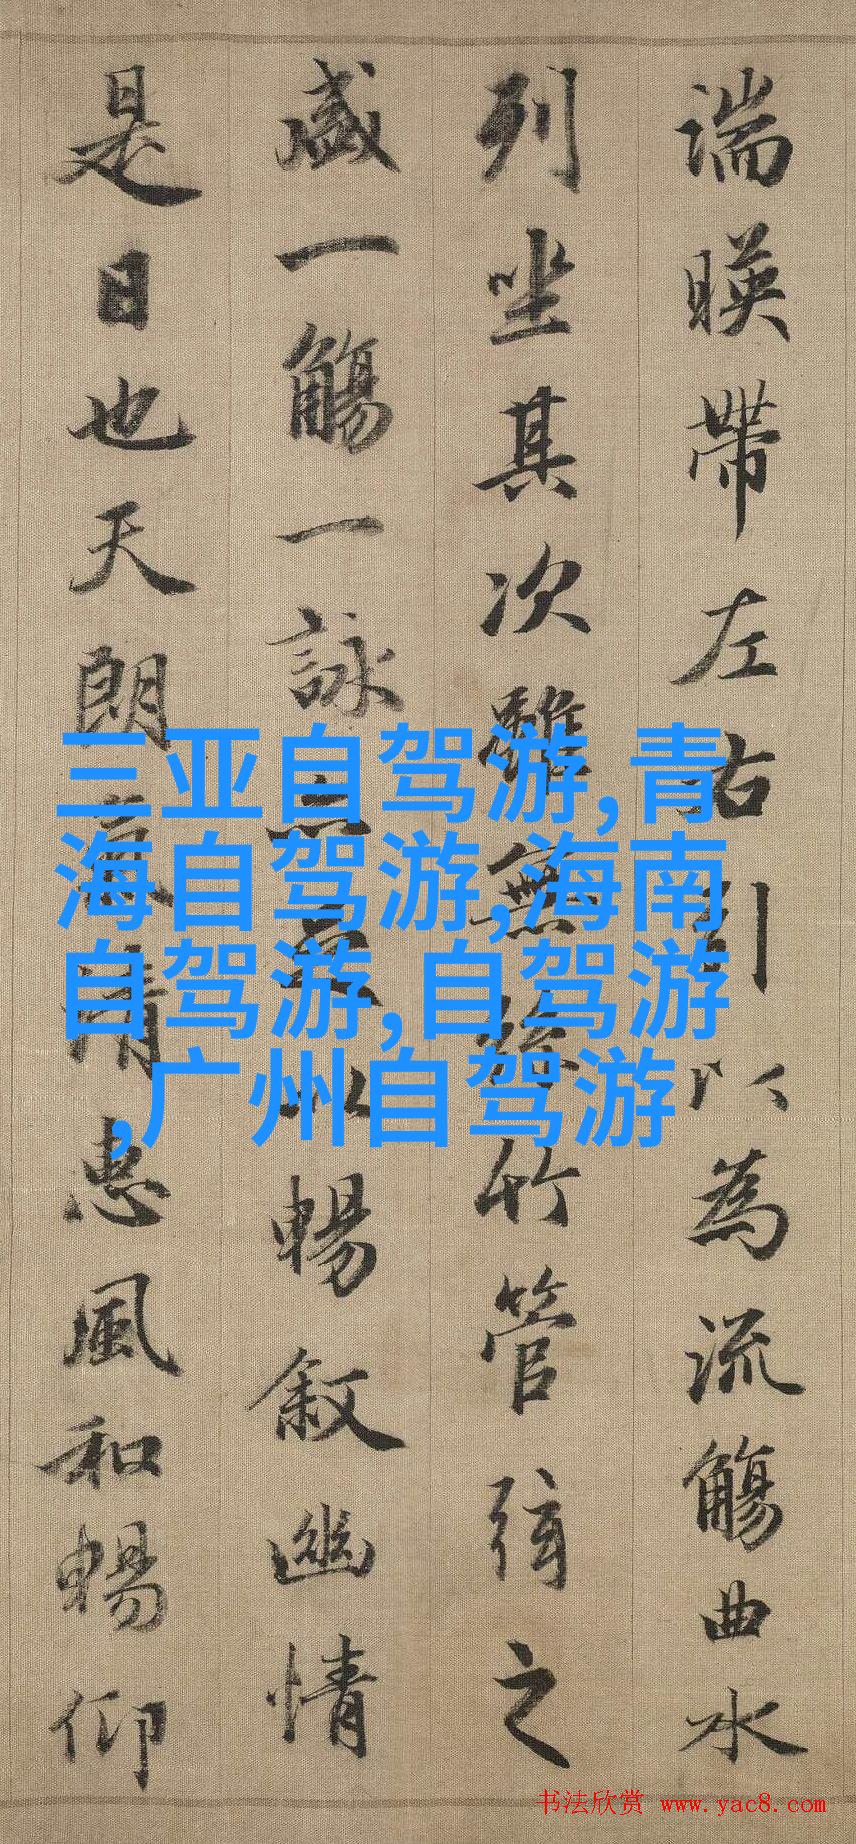 湍暎帶左右引以為流觴曲水
列坐其次雖無絲竹管弦之
盛一觴一詠亦足以暢叙幽情
是日也天朗氣清惠風和暢仰
三亚自驾游,青
海自驾游,海南
自驾游,自驾游
,广州自驾游
书法欣赏 www.yac8.com